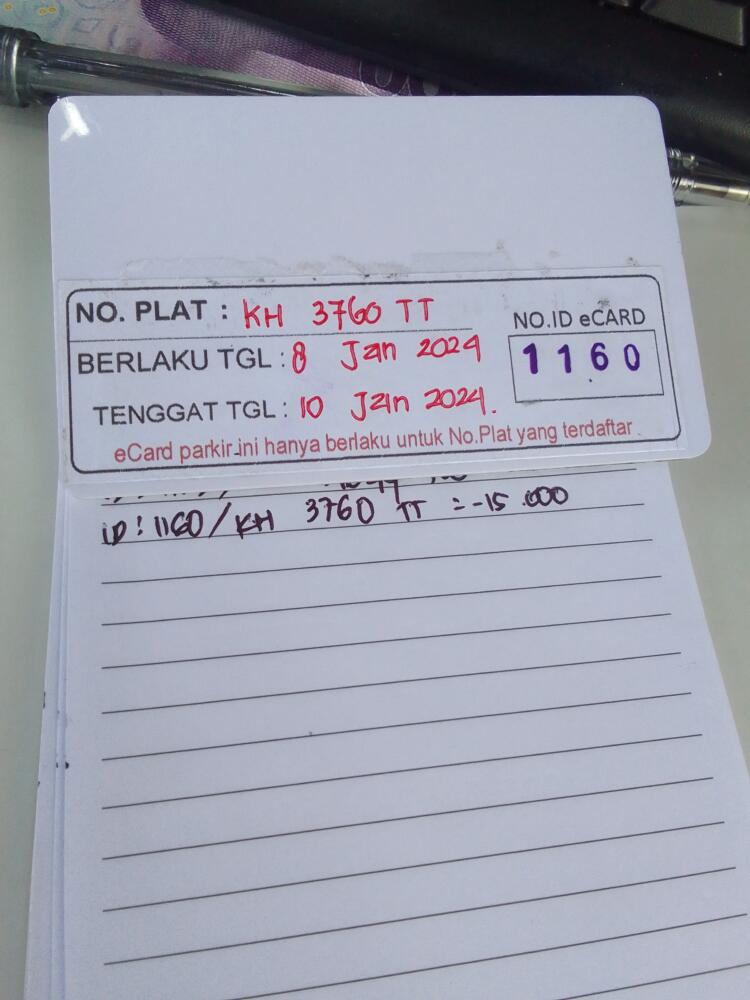 NO. PLAT : KH 3760 TT
NO.ID eCARD
BERLAKU TGL : 8 Jan 2024
1160
TENGGAT TGL : 10 Jan 2024.
eCard parkir ini hanya berlaku untuk No.Plat yang terdaftar
ID : 1160 / KH 3760 TT = -15.000